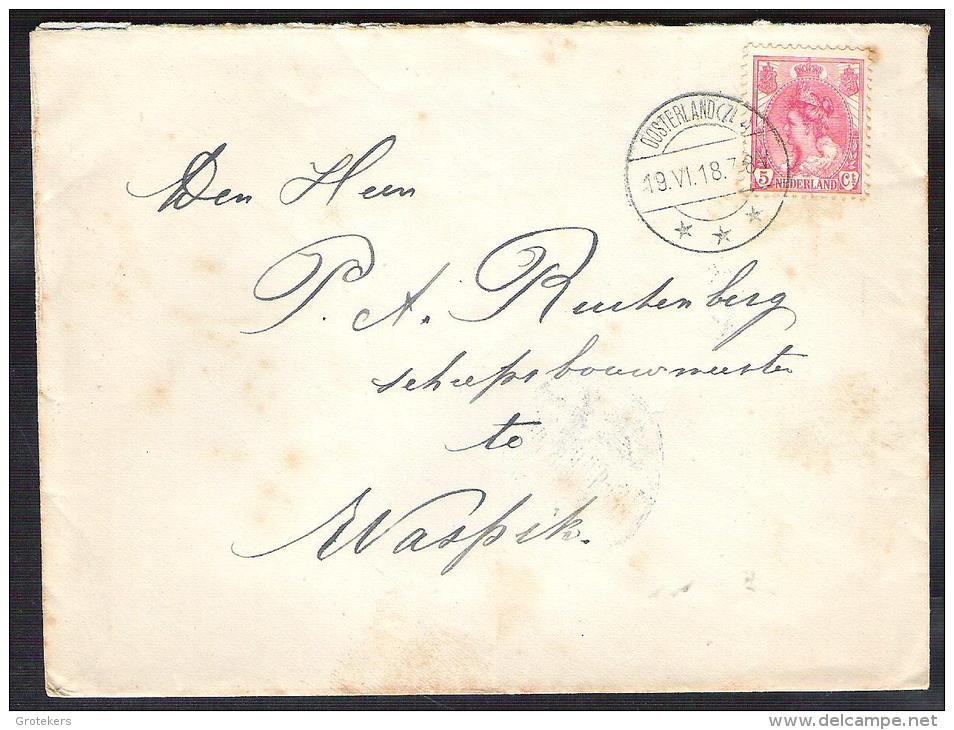 OOSTERLAND (ZL)
19.VI.18.7
5 NEDERLAND Ct
Den Heer
P. A. Ruitenberg
scheepsbouwmeester
te
Waspik.
Grotekers
www.delcampe.net